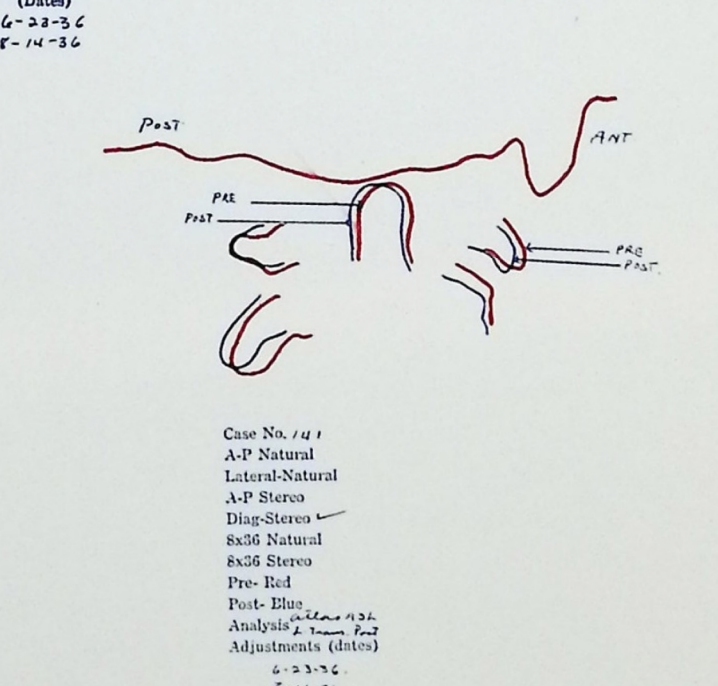 (Dates)
6-23-36
8-14-36
POST
ANT
PRE
POST
PRE
POST.
Case No. 141
A-P Natural
Lateral-Natural
A-P Stereo
Diag-Stereo ✓
8x36 Natural
8x36 Stereo
Pre- Red
Post- Blue
Analysis Atlas
L Trans. Post
Adjustments (dates)
6-23-36.